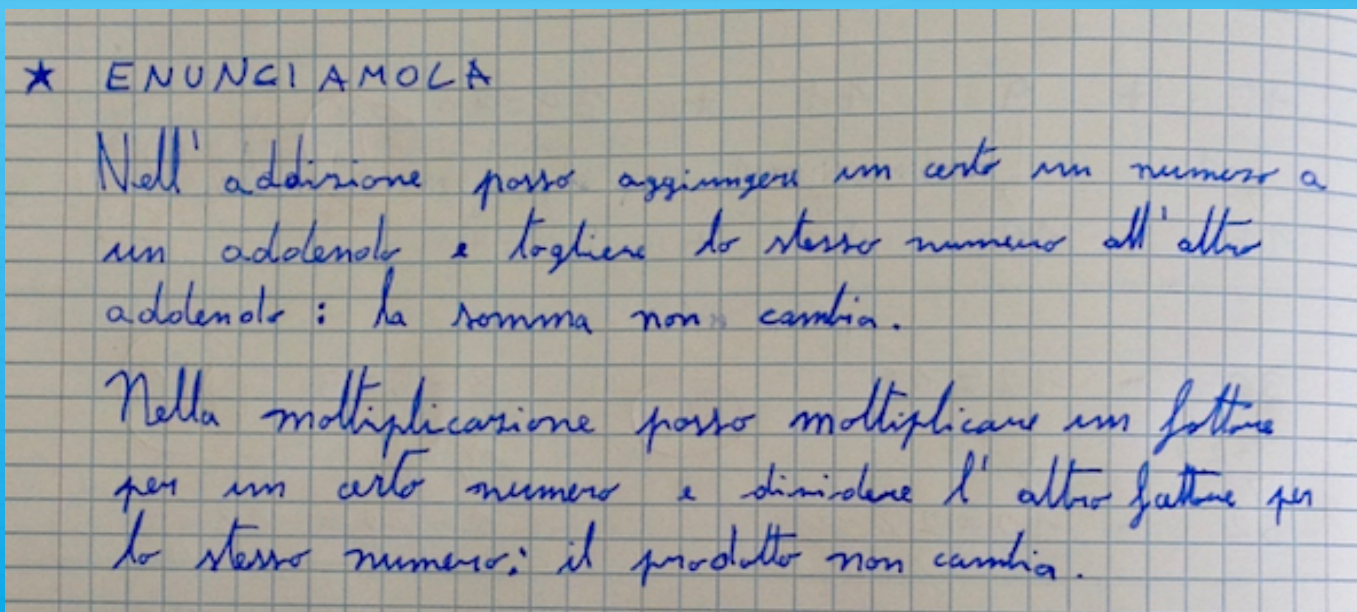 ★ ENUNCIAMOLA
Nell'addizione posso aggiungere un certo un numero a
un addendo e togliere lo stesso numero all'altro
addendo: la somma non cambia.
Nella moltiplicazione posso moltiplicare un fattore
per un certo numero e dividere l'altro fattore per
lo stesso numero: il prodotto non cambia.